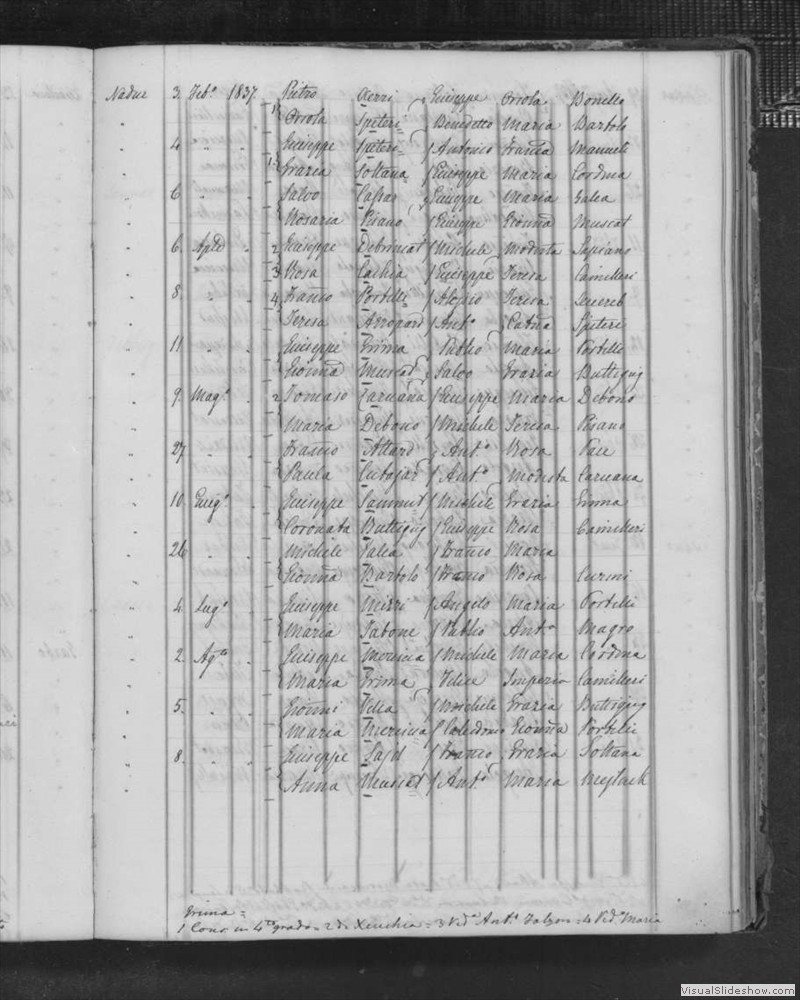 Nadur 3. Feb.o 1837. Pietro Azzi Giuseppe Orsola Bonello
" 1 Orsola Spiteri Benedetto Maria Bartolo
" 4 " " Giuseppe Spiteri Antonio Franca Manueli
" 1 Grazia Soltana Giuseppe Maria Cordina
" 6 " " Salvo Giuseppe Maria Galea
" Rosaria Pisano Giuseppe Gionna Muscat
" 6. Aple " 2 Giuseppe Debrincat Michele Modesta
" 3 Rosa Cachia Giuseppe Teresa Camilleri
" 8. " " 4 Franco Portelli Aloisio Teresa
" Teresa Azzopardi Ant.o Catna Spiteri
" 11 " " Giuseppe Grima Publio Maria Portelli
" Gionna Muscat Salvo Grazia Buttigieg
" 9. Mag.o " 2 Tomaso Caruana Giuseppe Maria Debono
" Maria Debono Michele Teresa Pisano
" 27 " " Franco Attard Ant.o Rosa Pace
" Paula Cutajar Ant.o Modesta Caruana
" 10. Giug.o " Giuseppe Sammut Michele Grazia Grima
" Coronata Buttigieg Giuseppe Rosa Camilleri
" 26 " " Michele Galea Franco Maria
" Gionna Bartolo Franco Rosa Curmi
" 4. Lug.o " Giuseppe Mizzi Angelo Maria Portelli
" Maria Tabone Publio Ant.a Magro
" 2. Ag.to " Giuseppe Michele Maria Cordina
" Maria Grima Felice Imperia Camilleri
" 5. " " Gionni Vella Michele Grazia Buttigieg
" Maria Gionna Portelli
" 8. " " Giuseppe Said Franco Grazia Soltana
" Anna Muscat Ant.o Maria Mejlach
Grima =
1 Cons. in 4.to grado = 2 di Xeuchia = 3 Ved.a Ant.o Falzon = 4 Ved. Maria
VisualSlideshow.com